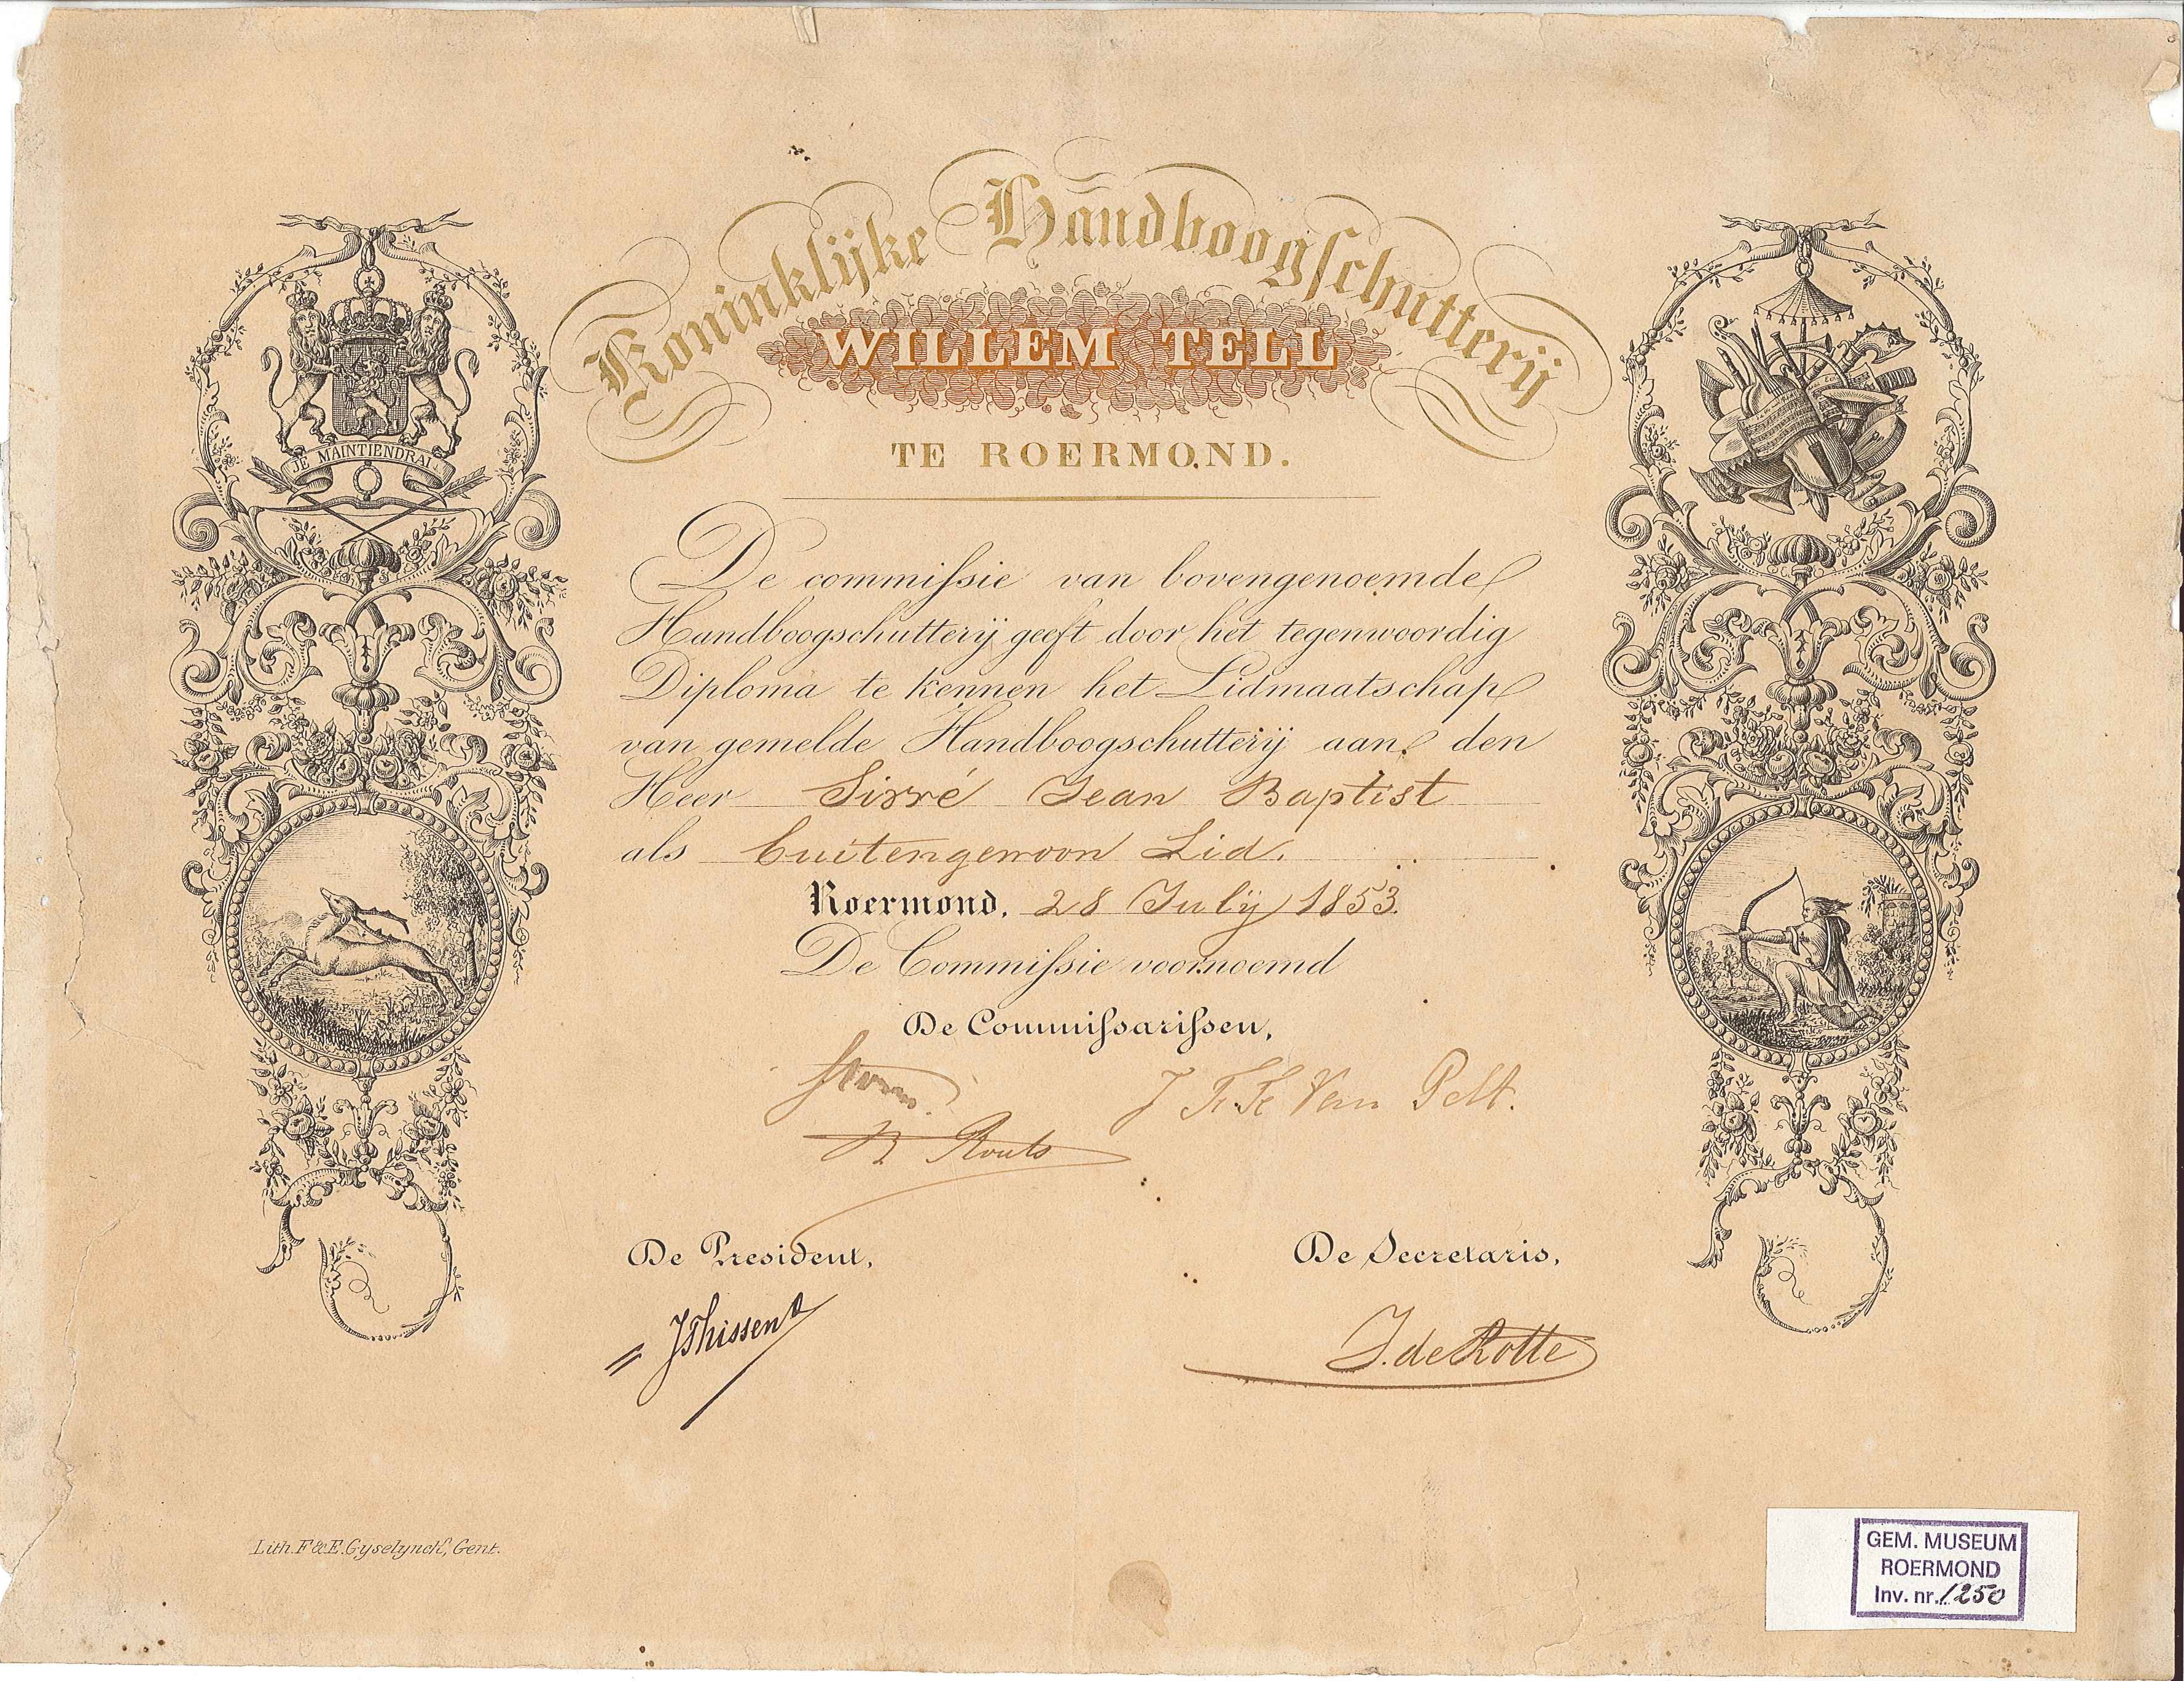 Koninklijke Handboogschutterij
WILLEM TELL
TE ROERMOND.
JE MAINTIENDRAI
De commissie van bovengenoemde
Handboogschutterij geeft door het tegenwoordig
Diploma te kennen het Lidmaatschap
van gemelde Handboogschutterij aan den
Heer Sirré Jean Baptist
als buitengewoon Lid.
Roermond, 28 July 1853.
De Commissie voornoemd
De Commissarissen,
Van Pelt.
De President,
De Secretaris,
JThissen
J. de Rotte
Lith. F & E. Gyselynck, Gent.
GEM. MUSEUM
ROERMOND
Inv. nr. 1250